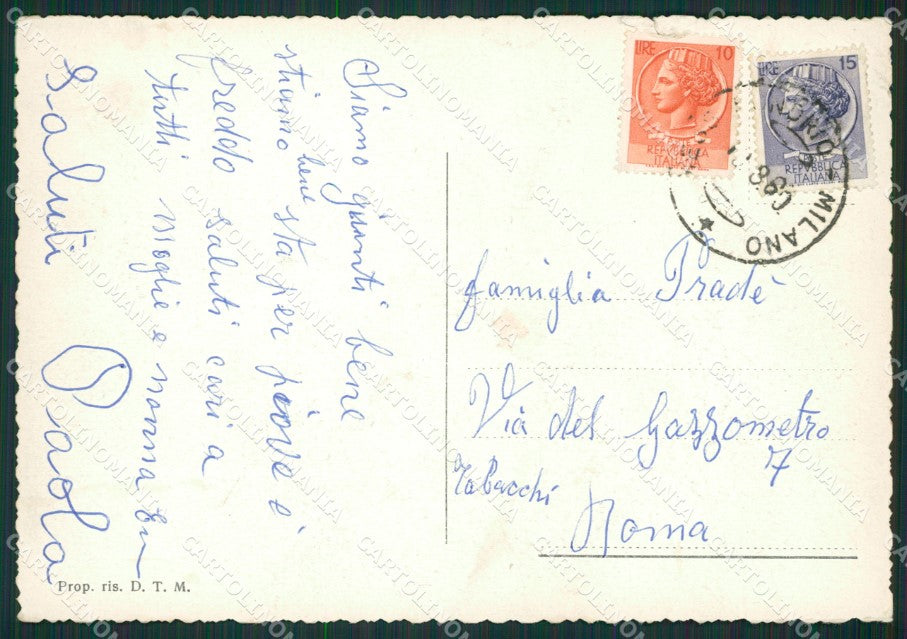 Siamo giunti bene
stiamo bene sta per piove è
freddo saluti cari a
tutti moglie e nonna
Saluti Paola
Prop. ris. D. T. M.
LIRE 10
REPVBBLICA
ITALIANA
LIRE 15
REPVBBLICA
ITALIANA
MILANO
famiglia Pradè
Via del Gazzometro
7
Tabacchi
Roma
CARTOLINOMANIA